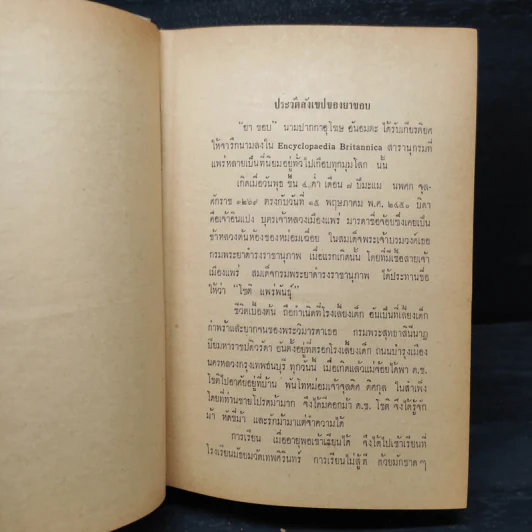 ประวัติสังเขปของยาขอบ
"ยา ขอบ" นามปากกาอุโฆษ อันอมตะ ได้รับเกียรติยศ
ให้จารึกนามลงใน Encyclopaedia Britannica สารานุกรมที่
แพร่หลายเป็นที่นิยมอยู่ทั่วไปเกือบทุกมุมโลก นั้น
เกิดเมื่อวันพุธ ขึ้น ๔ ค่ำ เดือน ๗ ปีมะแม นพศก จุล-
ศักราช ๑๒๖๙ ตรงกับวันที่ ๑๕ พฤษภาคม พ.ศ. ๒๔๕๐ บิดา
คือเจ้าอินแปง บุตรเจ้าหลวงเมืองแพร่ มารดาชื่อจ้อยซึ่งเคยเป็น
ข้าหลวงต้นห้องของหม่อมเฉื่อย ในสมเด็จพระเจ้าบรมวงศ์เธอ
กรมพระยาดำรงราชานุภาพ เมื่อแรกเกิดนั้น โดยที่มีเชื้อสายเจ้า
เมืองแพร่ สมเด็จกรมพระยาดำรงราชานุภาพ ได้ประทานชื่อ
ให้ว่า "โชติ แพร่พันธุ์"
ชีวิตเบื้องต้น ถือกำเนิดที่โรงเลี้ยงเด็ก อันเป็นที่เลี้ยงเด็ก
กำพร้าและยากจนของพระวิมารดาเธอ กรมพระสุทธาสินีนาฏ
ปิยมหาราชปดิวรัดา อันตั้งอยู่ที่ตรอกโรงเลี้ยงเด็ก ถนนบำรุงเมือง
นครหลวงกรุงเทพธนบุรี ทุกวันนี้ เมื่อเกิดแล้วแม่จ้อยได้พา ด.ช.
โชติไปอาศัยอยู่ที่บ้าน พันโทหม่อมเจ้าจุลดิศ ดิศกุล ในสำเพ็ง
โดยที่ท่านชายโปรดม้ามาก จึงได้มีคอกม้า ด.ช. โชติ จึงได้รู้จัก
ม้า หัดขี่ม้า และรักม้ามาแต่จำความได้
การเรียน เมื่ออายุพอเข้าเรียนได้ จึงได้ไปเข้าเรียนที่
โรงเรียนมัธยมวัดเทพศิรินทร์ การเรียนไม่สู้ดี ด้วยมักขาด ๆ